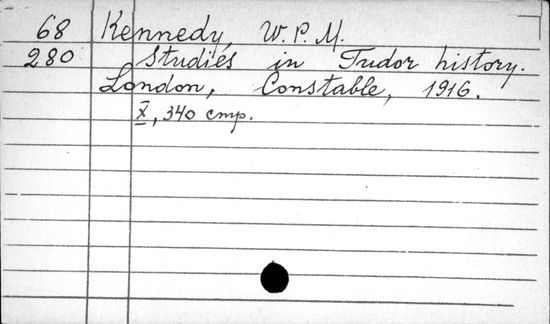 68 Kennedy, W. P. M.
280 Studies in Tudor history.
London, Constable, 1916.
X, 340 cmp.